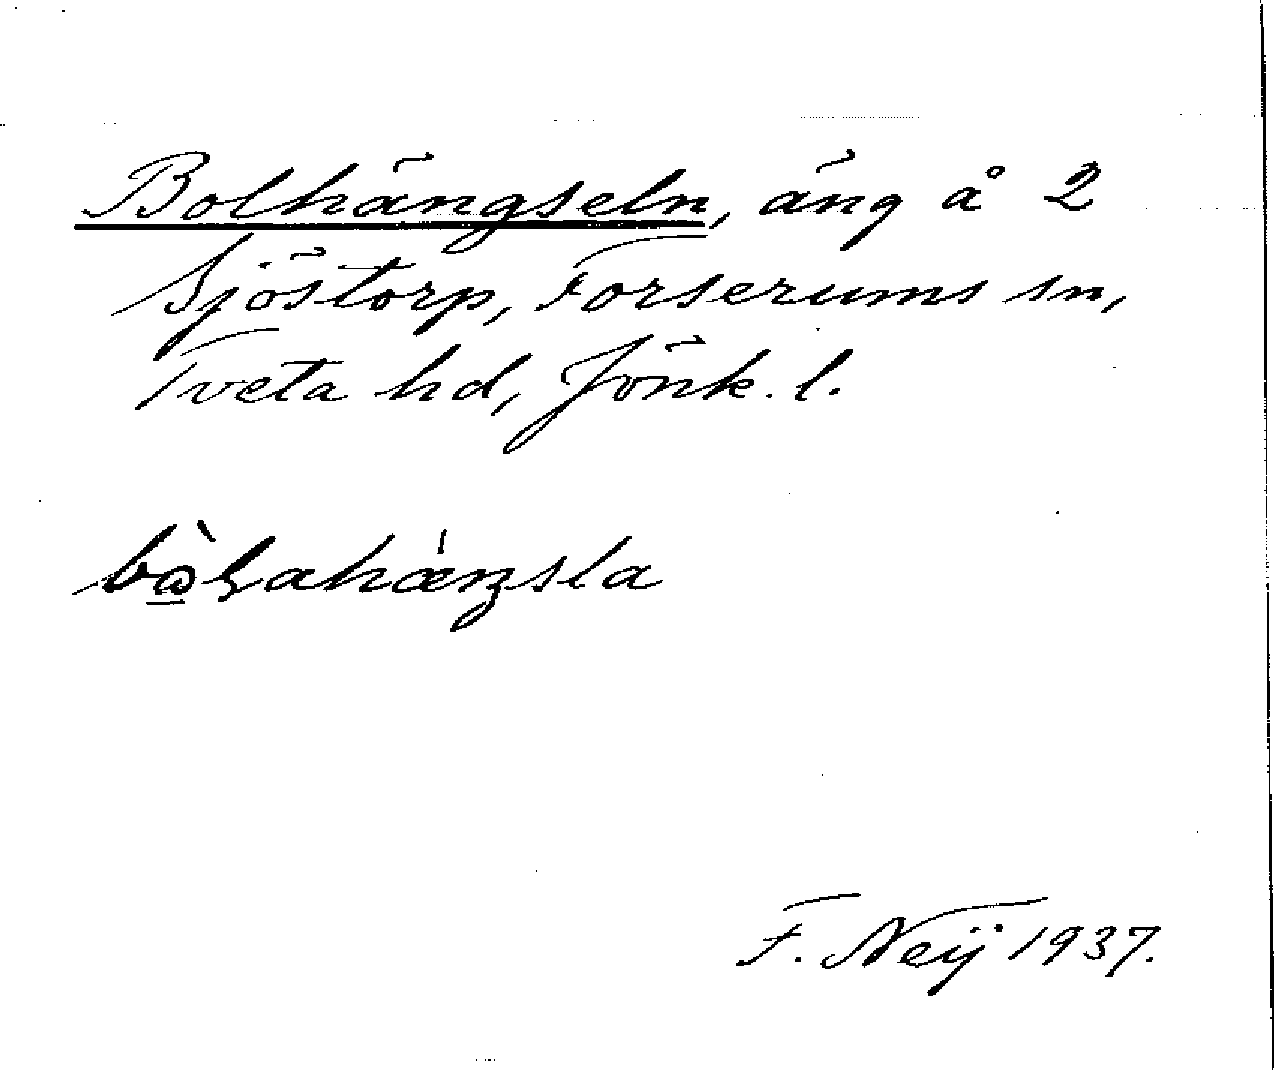 Bolhängseln, äng å 2
Sjöstorp, Forserums sn,
Tveta hd, Jönk. l.
bɷ̀ɽahæ̍ŋsla
F. Neij 1937.